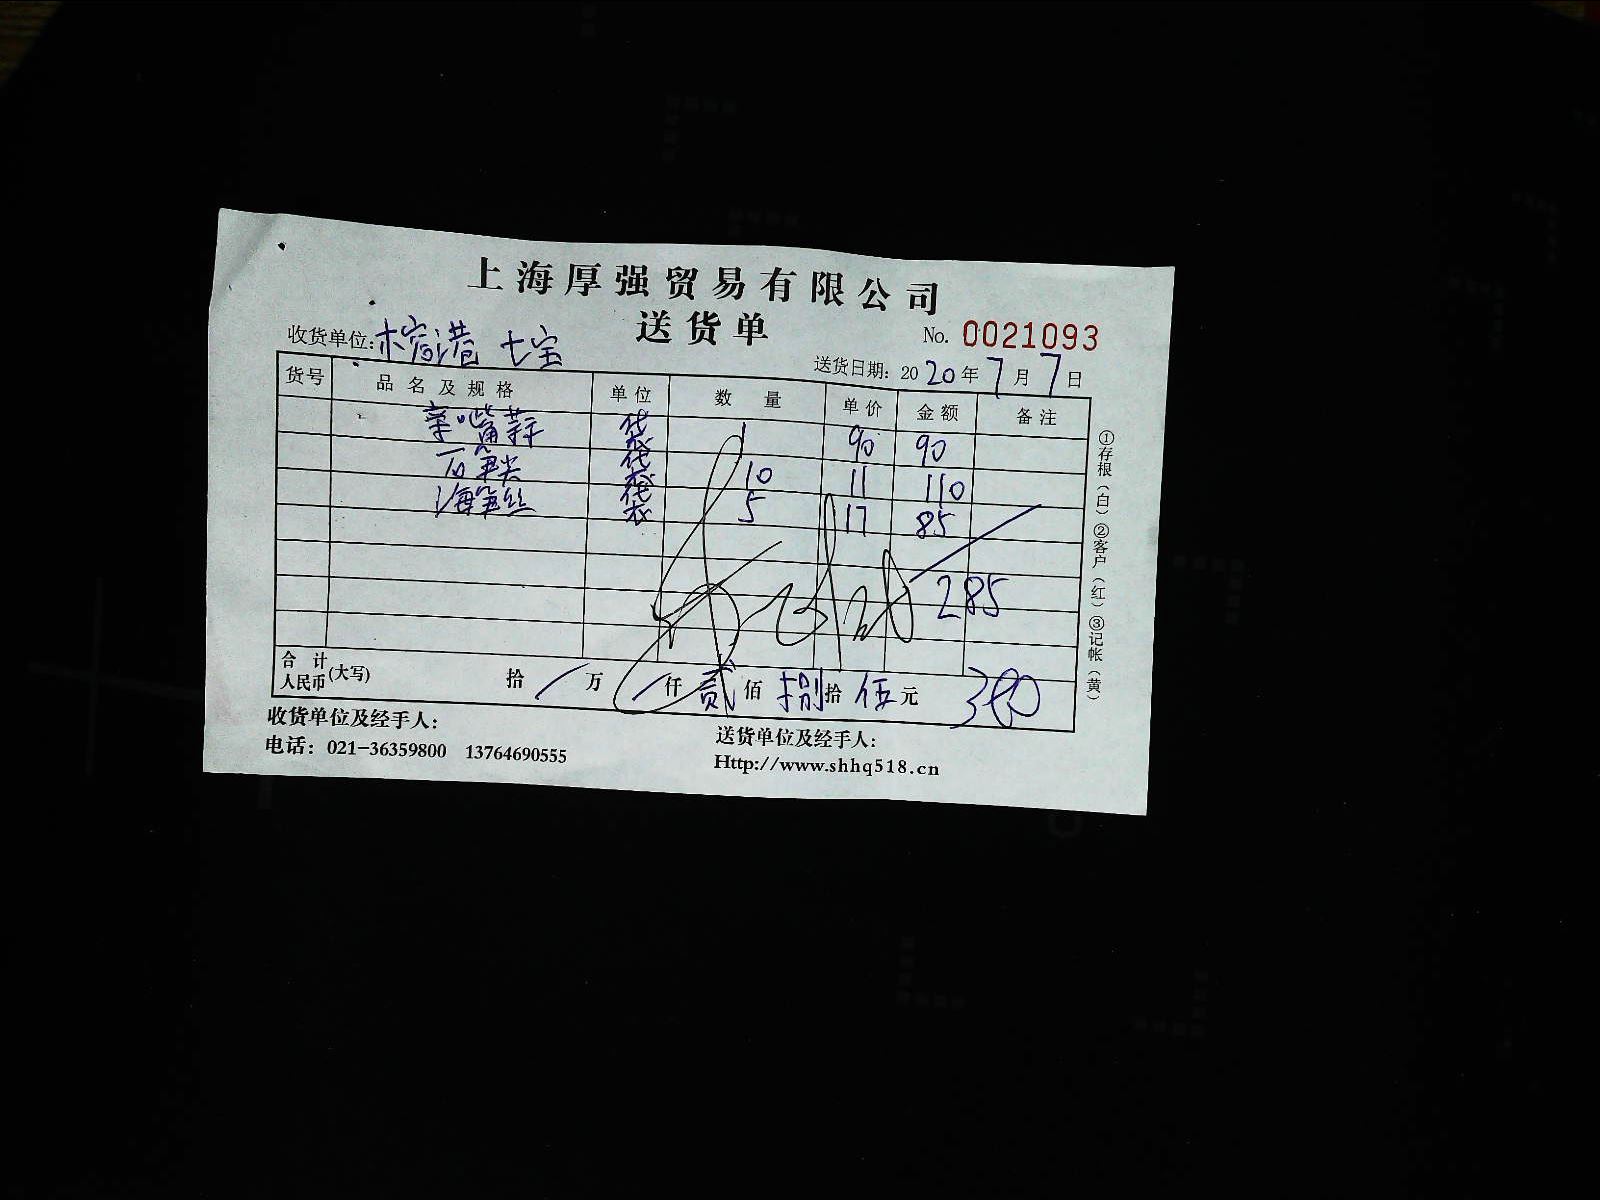 上海厚强贸易有限公司
送货单
No. 0021093
收货单位: 七宝
送货日期: 2020年7月7日
货号 品名及规格 单位 数量 单价 金额 备注
袋 1 90 90
袋 10 11 110
海笋丝 袋 5 17 85
285
合计人民币(大写) 拾/万/仟贰佰捌拾伍元
收货单位及经手人:
送货单位及经手人:
电话: 021-36359800 13764690555
Http://www.shhq518.cn
①存根(白)②客户(红)③记帐(黄)